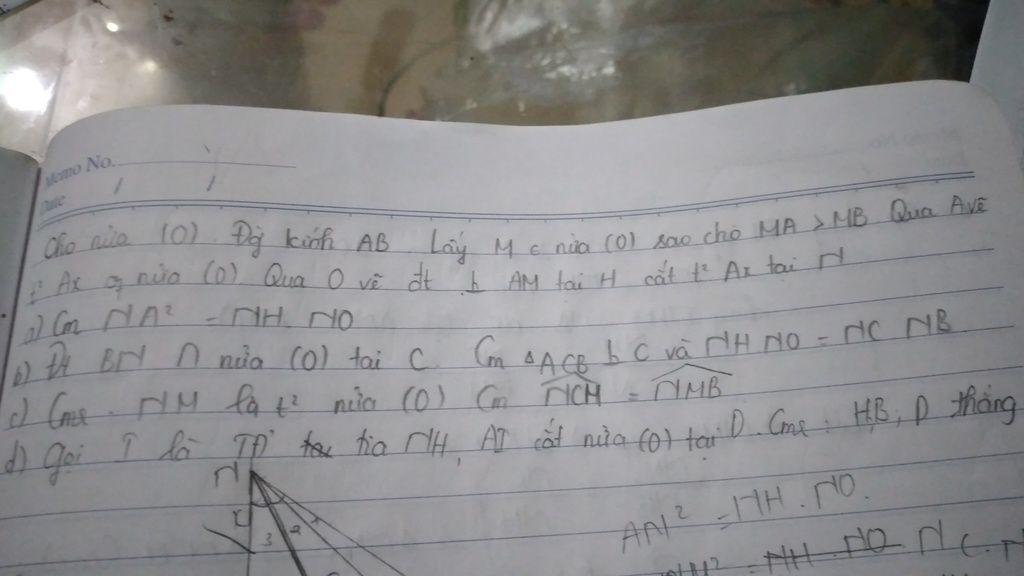 Memo No.
Date / /
Cho nửa (O) Đg kính AB Lấy M ∈ nửa (O) sao cho MA > MB Qua A vẽ
t² Ax nửa (O) Qua O vẽ đt ⊥ AM tại H cắt t² Ax tại N
a) Cm NA² = NH. NO
b) Đt BN ∩ nửa (O) tại C. Cm △ACB ⊥ C và NH NO = NC NB
c) Cmr. NM là t² nửa (O) Cm NCH = NMB
d) Gọi I là TĐ tia NH, AI cắt nửa (O) tại D. Cmr: H,B, D thẳng
N
3 2 1
AN² = NH. NO.
NM² = NH. NO N C.